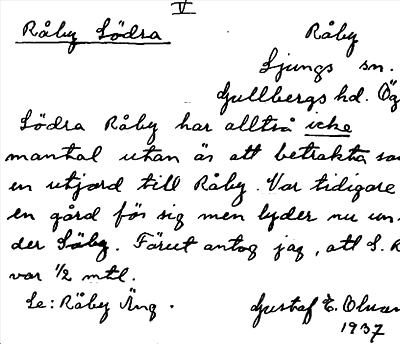 V
Råby Södra
Råby
Ljungs sn.
Gullbergs hd. Ög
Södra Råby har alltså icke
mantal utan är att betrakta som
en utjord till Råby. Var tidigare
en gård för sig men lyder nu un-
der Säby. Förut antog jag, att S. R
var 1/2 mtl.
Se: Råby Äng.
Gustaf E. Olsson
1937